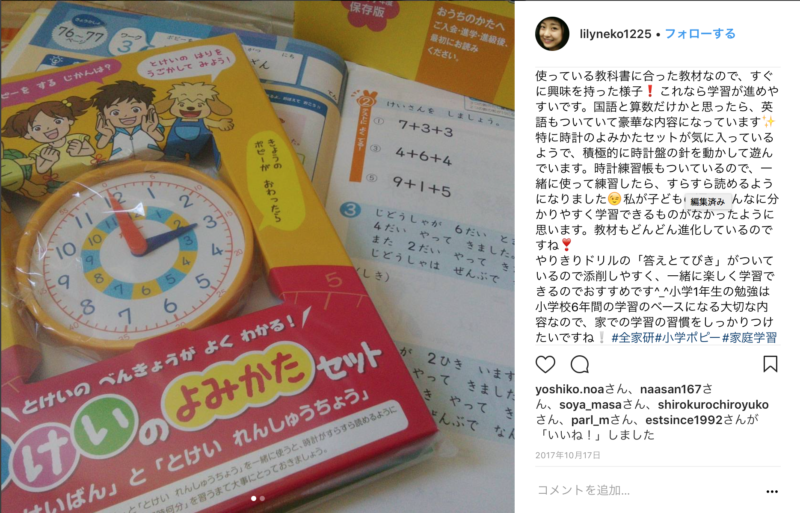 保存版
おうちのかたへ
ご入会・進学・進級後、
最初にお読み
ください。
76〜77
ページ
ワーク
3
とけいの はりを
うごかして みよう!
ピーを する じかんは?
きょうの
ポピーが
おわったら
けいさんを しましょう。
①
7+3+3
③
4+6+4
⑤
9+1+5
3
じどうしゃが 6だい と
4だい やって きました
また 2だい やって き
じどうしゃは ぜんぶで
(しき)
が 2ひき います
やって きました
やって き
んぶで なん
12
1
2
3
4
5
6
7
8
9
10
11
5
とけいの べんきょうが よく わかる!
けいのよみかたセット
けいばん」と「とけい れんしゅうちょう」
と「とけい れんしゅうちょう」を一緒に使うと、時計がすらすら読めるように
を習うまで大事にとっておきましょう。
lilyneko1225 • フォローする
使っている教科書に合った教材なので、すぐ
に興味を持った様子❗これなら学習が進めや
すいです。国語と算数だけかと思ったら、英
語もついていて豪華な内容になっています✨
特に時計のよみかたセットが気に入っている
ようで、積極的に時計盤の針を動かして遊ん
でいます。時計練習帳もついているので、一
緒に使って練習したら、すらすら読めるよう
になりました😉私が子ども 編集済み んなに分
かりやすく学習できるものがなかったように
思います。教材もどんどん進化しているので
すね❣
やりきりドリルの「答えとてびき」がついて
いるので添削しやすく、一緒に楽しく学習で
きるのでおすすめです^_^小学1年生の勉強は
小学校6年間の学習のベースになる大切な内
容なので、家での学習の習慣をしっかりつけ
たいですね❕ #全家研#小学ポピー#家庭学習
yoshiko.noaさん、naasan167さ
ん、soya_masaさん、shirokurochiroyuko
さん、parl_mさん、estsince1992さんが
「いいね!」しました
2017年10月17日
コメントを追加...